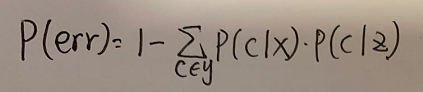 P(err)= 1 - ∑_{c∈y} P(c|x)·P(c|z)